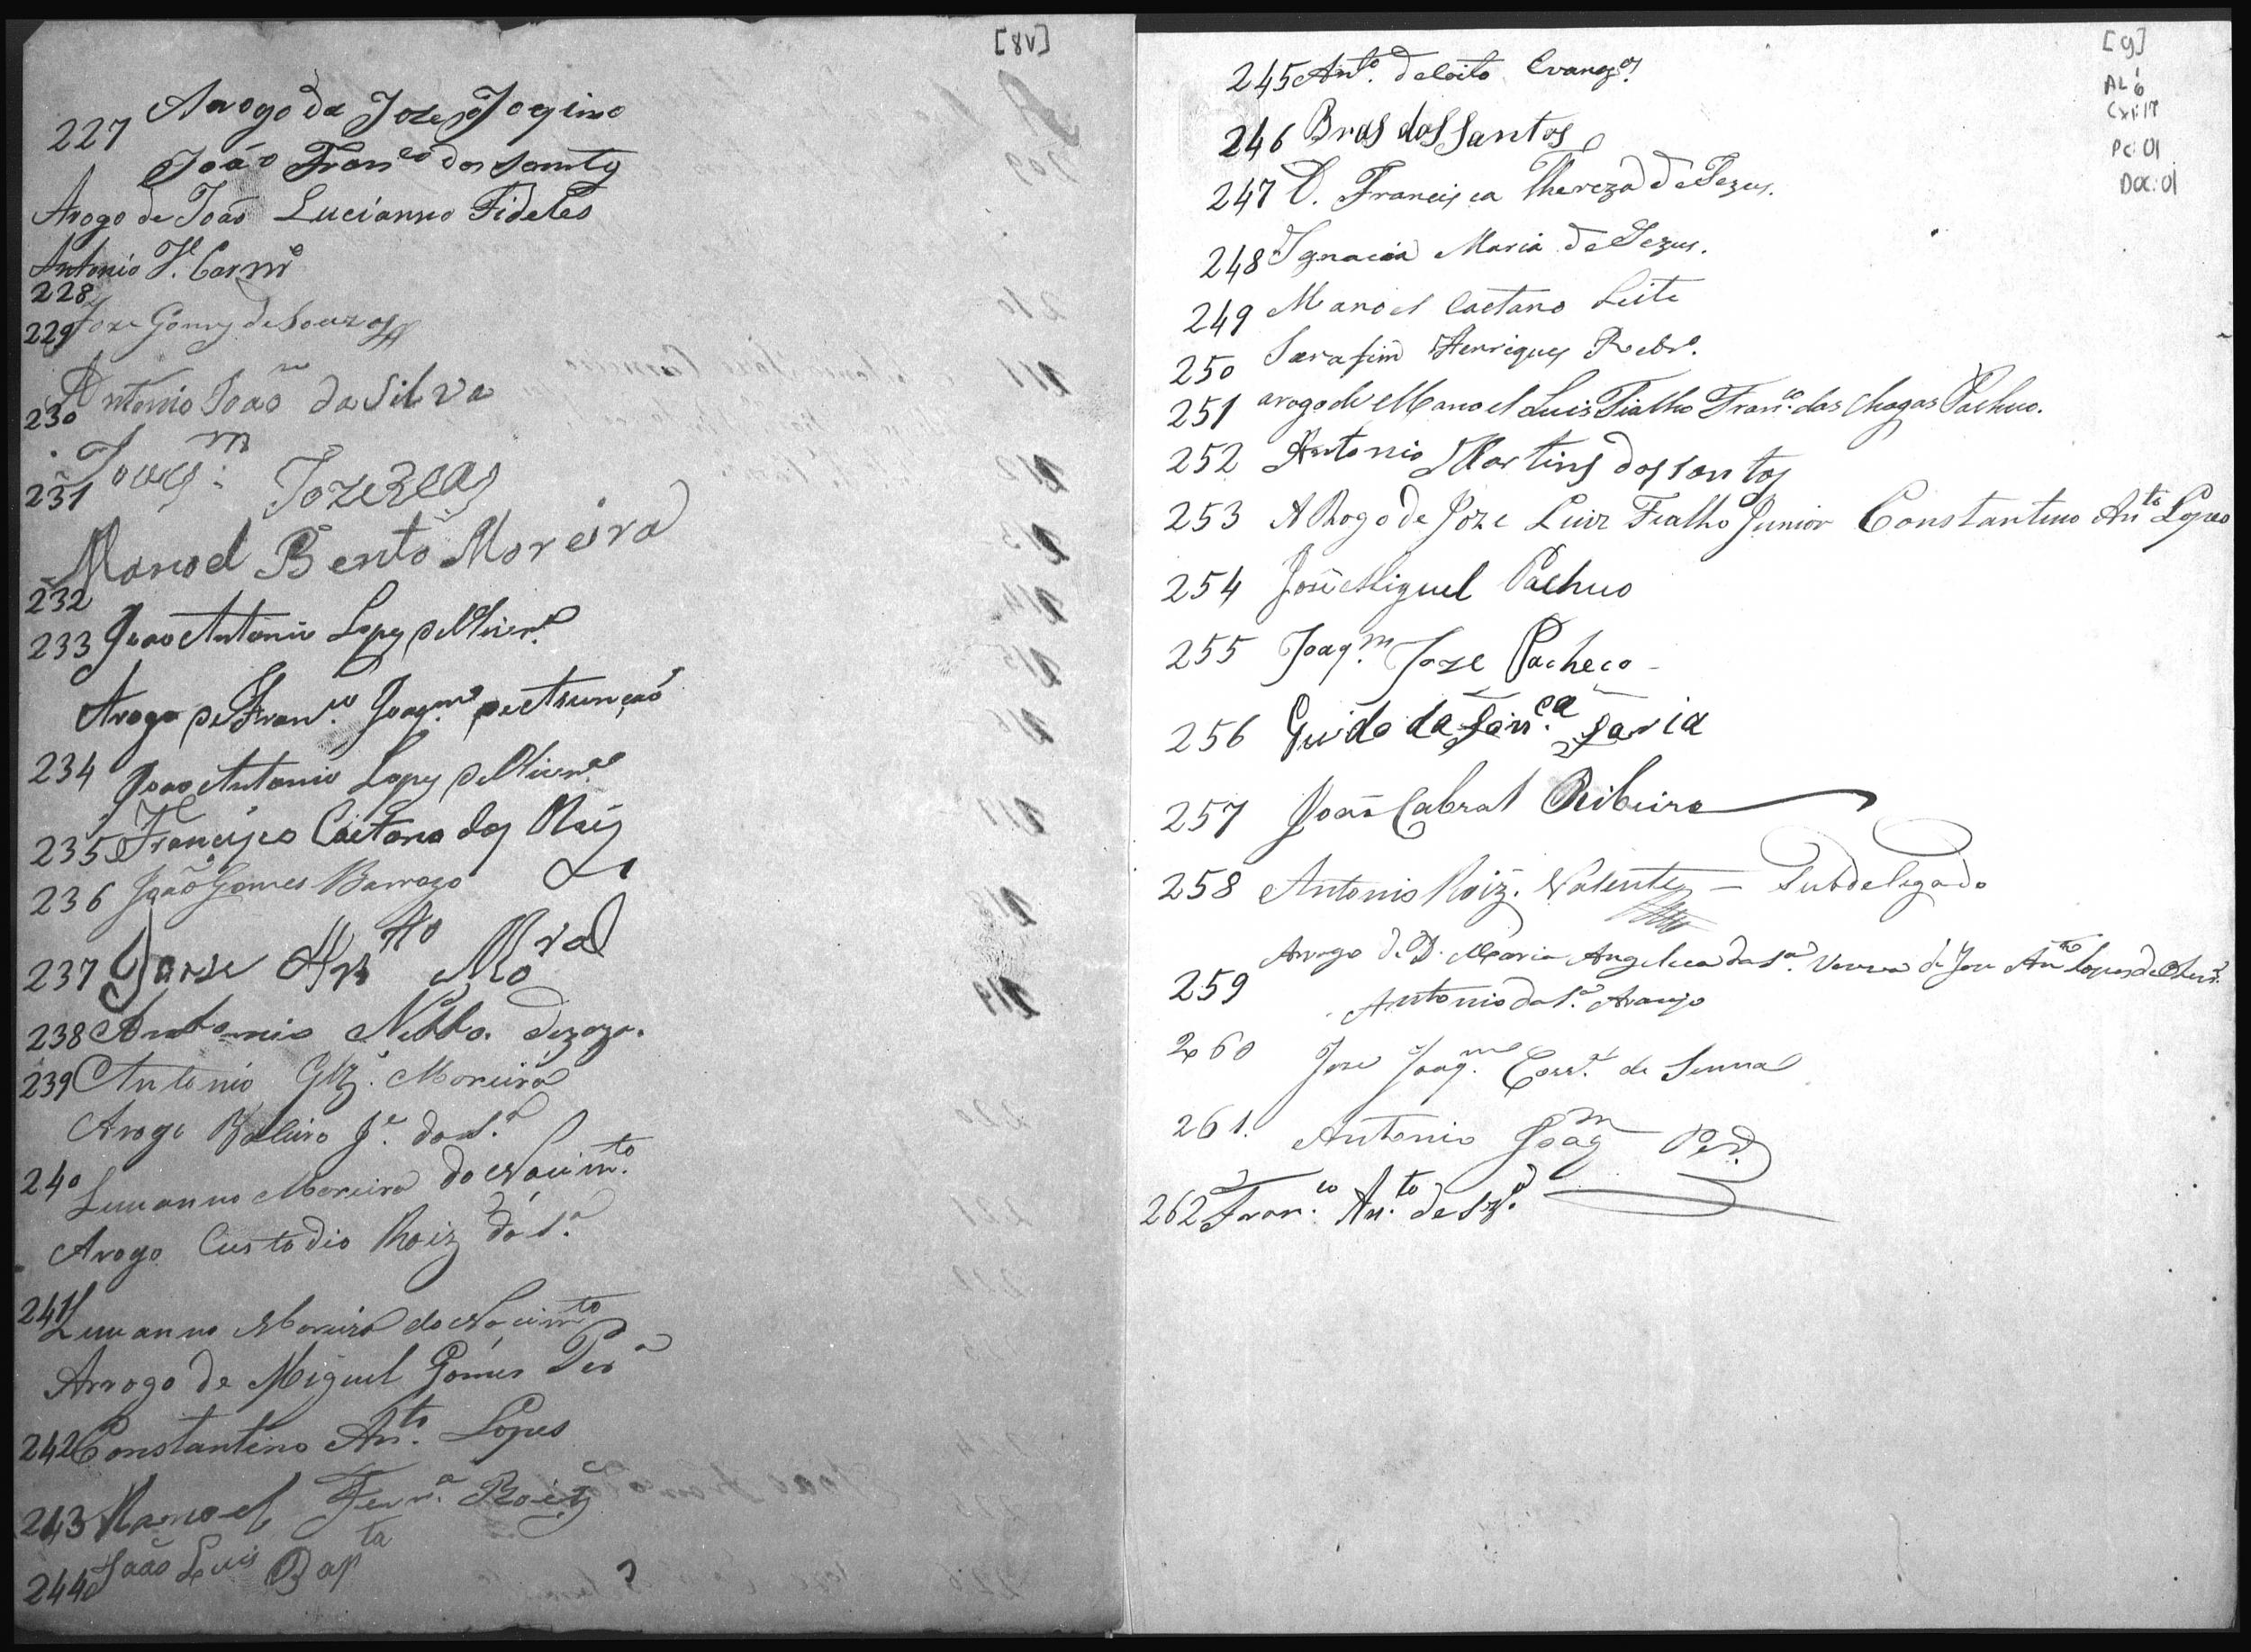 [8v]
Arogo da Joze Joqino
227
João Franco dos Santos
Arogo de João Lucianno Fideles
Antonio Carnro
228
229 Joze Gomes de Souza
Antonio João da Silva
230
231 Joze
Manoel Bento Moreira
232
233 João Antonio Lopes de Olivera
Arogo de Franco. Joaqm de Asunção
234 João Antonio Lopes de Olivera
235 Francisco Caetano dos Reis
236 João Gomes Barrozo
237 Joze Anto
238 Antonio
239 Antonio Glz. Moreira
Arogo Je. da Sa
240 Lucianno Moreira do Nacimto.
Arogo Custodio Roiz da Sa
241 Lucianno Moreira do Nacimto
Arrogo de Miguel Gomes Pera
242 Constantino Anto. Lopes
243 Manoel Ferra. Roiz
244 João Luis Bapta
[9]
AL 6
Cxi:17
Pc: 01
Doc: 01
245 Anto. de Coito Evango.
246 Bras dos Santos
247 D. Francisca Thereza de Jezus.
248 Ignacia Maria de Jezus.
249 Manoel Caetano Leite
250 Sarafim Henriques Rebro.
251 arogo de Manoel Luis Fialho Franco. das Chagas Pacheco.
252 Antonio Martins dos santos
253 A Rogo de Joze Luiz Fialho Junior Constantino Anto Lopes
254 José Miguel Pacheco
255 Joaqm. Joze Pacheco
256 Guido da Fonca. Faria
257 João Cabral Ribeiro
258 Antonio Roiz. Valente — Subdelegado
Arrogo de D. Maria Angelica da Sa. Veuva de Joze Anto Lopes de Olivra.
259
Antonio da Sa. Araujo
260 Joze Joaqm. Corra. de Senna
261. Antonio Joaqm Per
262 Franco. Anto. de Sza